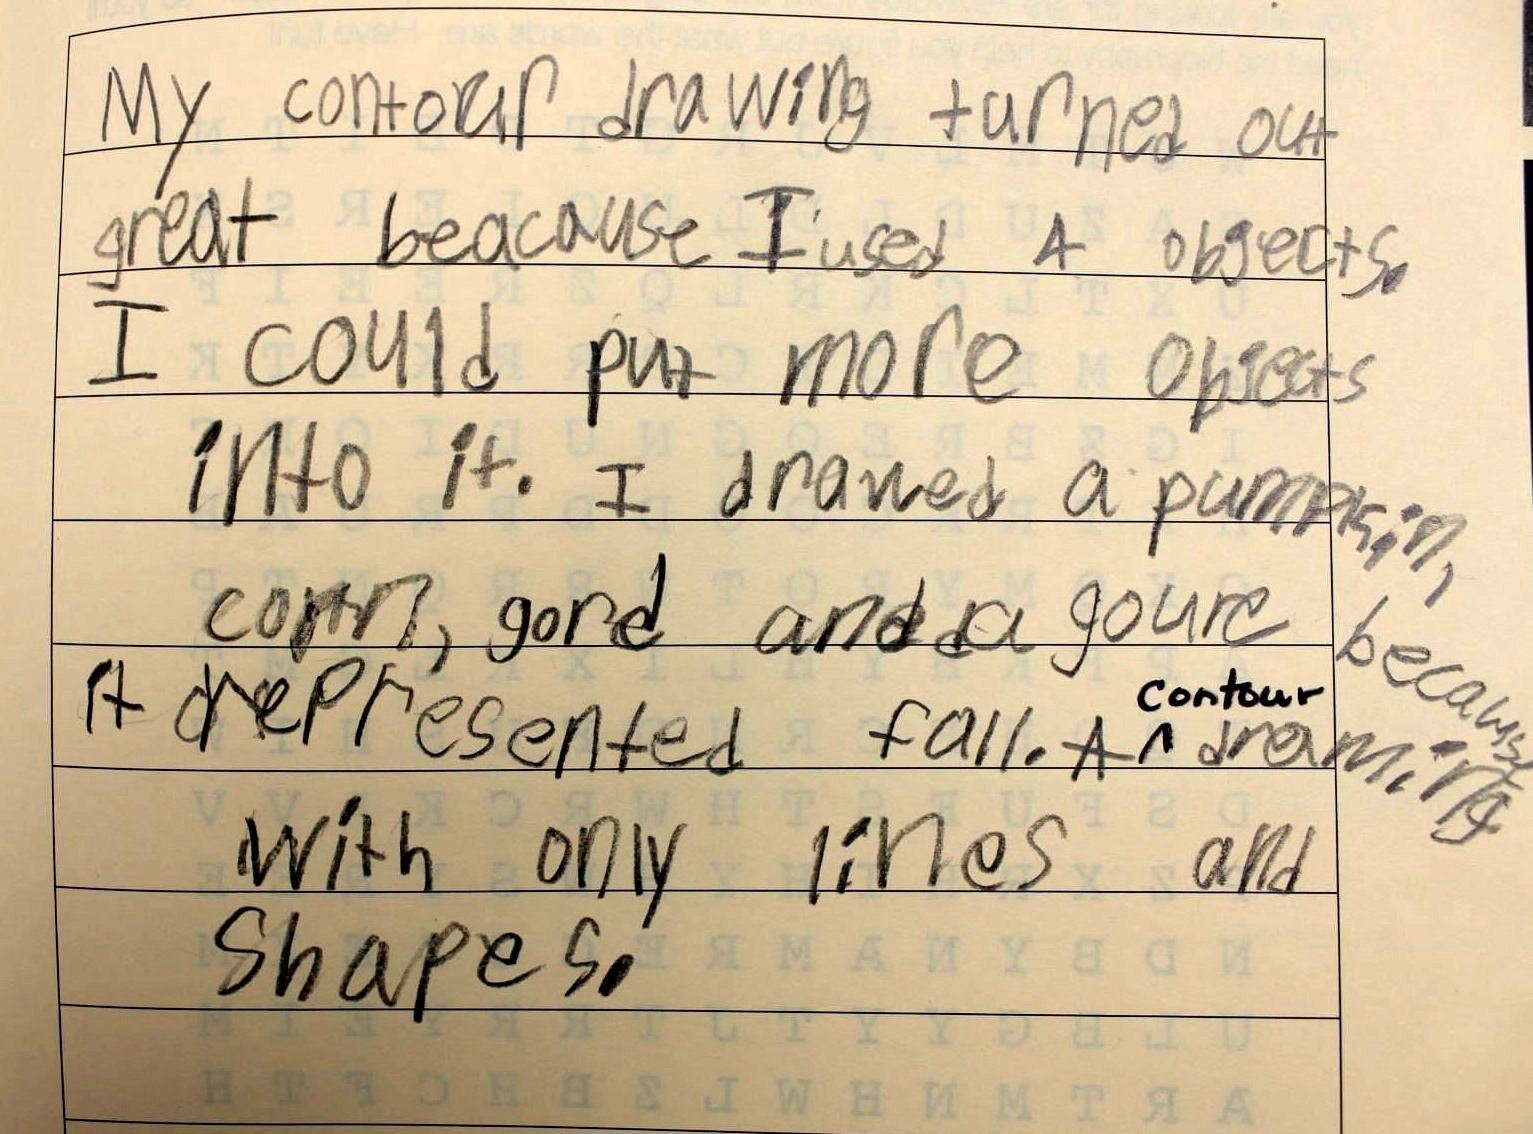 My contour drawing turned out
great beacause I used 4 objects.
I could put more objects
into it. I drawed a pumpkin,
corn, gord and a goure because
it represented fall. A ^ contour drawing
with only lines and
shapes.